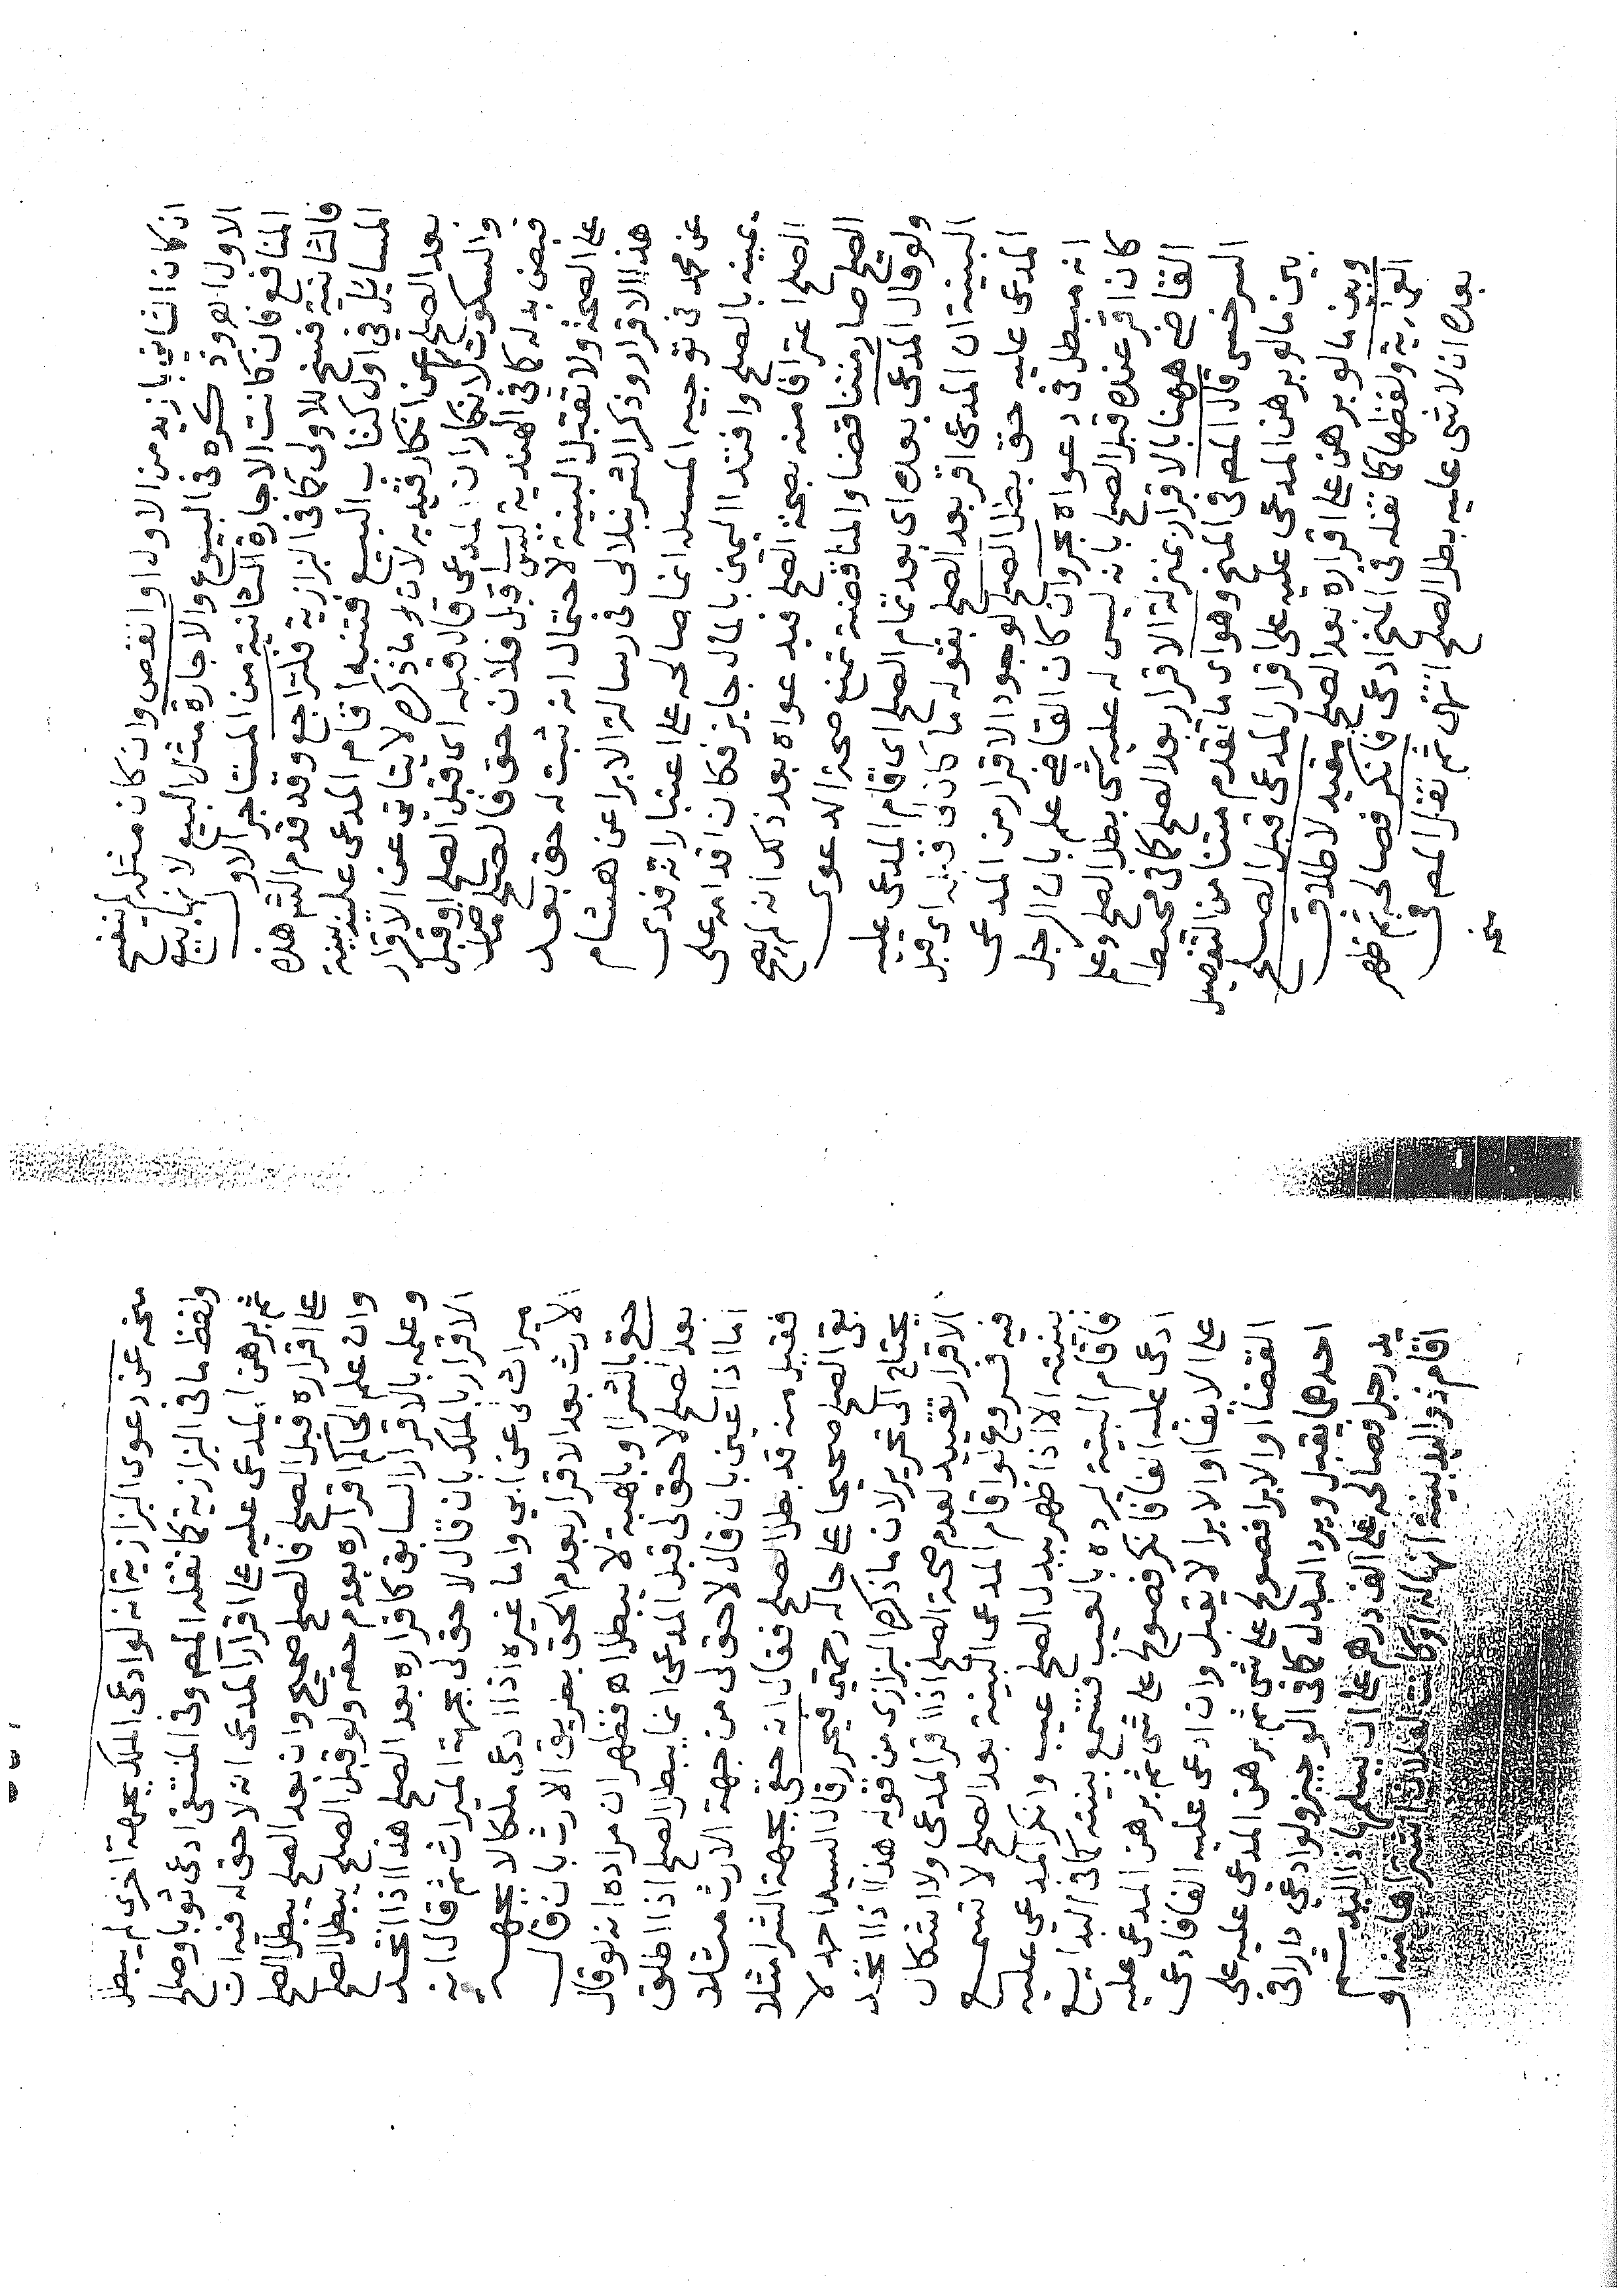 ان كان الثاني بازيد من الاول او انقص وان كان مثله لم ينفسخ
الاول اهـ وذكره في البيوع والاجارة مثل البيع لانها بيع
المنافع فان كانت الاجارة الثانية من المستاجر الاول
فالثانية فسخ للاولى كما في البزازية فلتراجع وقد قدم الشم هذه
المسايل في اول كتاب البيع فتنبه اقام المدعى عليه بينة
بعد الصلح عن انكار قيد به لانه وماذكره لا يتاتى عن الاقرار
والسكوت كالانكار ان المدعي قال قبله اي قبل الصلح او قبل
قبض بدله كما في الهندية ليس لي قبل فلان حق فالصلح ماض
على الصحة ولا تقبل البينة لاحتمال انه ثبت له حق بعد
هذا الاقرار وذكر الشرنبلالي في رسالة الابرا عن هشام
عن محمد في توجيه المسيلة انما صالحه على اعتبار انه فدى
يمينه بالصلح وافتدا اليمين بالمال جايز فكان اقدامه على
الصلح اعترافا منه بصحة الصلح فبدعواه بعد ذلك انه لم يصح
الصلح صار متناقضا والمناقضة تمنع صحة الدعوى
ولو قال المدعي بعده اي بعد تمام الصلح اي اقام المدعى عليه
البينة ان المدعي اقر بعد الصلح بقوله ما كان لي قبله اي قبل
المدعى عليه حق بطل الصلح لوجود الاقرار من المدعي
انه مبطل في دعواه بحر وان كان القاضي علم بان الرجل
كان اقر عنده قبل الصلح بانه ليس له عليه شي بطل الصلح وعلم
القاضي ههنا بالاقرار بمنزلة الاقرار بعد الصلح كما في محيط
السرخسي قال المص في المنح وهو اي ما تقدم متنا من التفصيل
بين ما لو برهن المدعى عليه على اقرار المدعي قبل الصلح
وبين ما لو برهن على اقراره بعد الصلح مقيد لاطلاق
العمادية ولفظها كما نقله في المنح ادعى فانكر فصالحه ثم ظهر
بعده ان لا شي عليه بطل الصلح انتهى ثم نقل المص في
منحه
منحه عن دعوى البزازية انه لو ادعى الملك بجهة اخرى لم يبطل
ولفظ ما في البزازية كما نقله المص وفي المنتقى ادعى ثوبا وصالح
ثم برهن المدعى عليه على اقرار المدعي انه لا حق له فيه ان
على اقراره قبل الصلح فالصلح صحيح وان بعد الصلح يبطل الصلح
وان علم الحاكم اقراره بعدم حقه ولو قبل الصلح يبطل الصلح
وعلمه بالاقرار السابق كاقراره بعد الصلح هذا اذا اتحد
الاقرار بالملك بان قال لا حق لي بجهة الميراث ثم قال انه
ميراث لي عن ابي واما غيره اذا ادعى ملكا لا بجهة
الارث بعد الاقرار بعدم الحق بطريق الارث بان قال
حق بالشرا او بالهبة لا يبطل اهـ فظهر ان مراده انه لو قال
بعد الصلح لا حق لي قبل المدعى انما يبطل الصلح اذا اطلق
اما اذا عين بان قال لا حق لي من جهة الارث مثلا
فقيل منه قد بطل الصلح فقال انه حقي بجهة الشرا مثلا
بقي الصلح صحيحا على حاله رحمتي فيحرر قال السيد احمد لا
يحتاج الى تحرير لان ما ذكره البزازي من قوله هذا اذا اتحد
الاقرار تقييد لعدم صحة الصلح اذا اقر المدعي ولا اشكال
فيه فسروع لو اقام المدعي البينة بعد الصلح لا تسمع
بينته الا اذا ظهر ببدل الصلح عيب وانكر المدعى عليه
فاقام البينة ليرده بالعيب فتسمع بينته كما في البدايع
ادعى عليه الفا فانكر فصولح على شي ثم برهن المدعى عليه
على الايفا او الابرا لا يقبل وان ادعى عليه الفا فادعى
القضا او الابرا فصولح على شي ثم برهن المدعى عليه على
احدهما يقبل ويرد البدل كما في الوجيز ولو ادعى دارا في
يد رجل فصالحه على الف درهم على ان يسلمها ذا اليد ثم
اقام ذو اليد بينة انها له او كانت لفلان اشتراها منه او